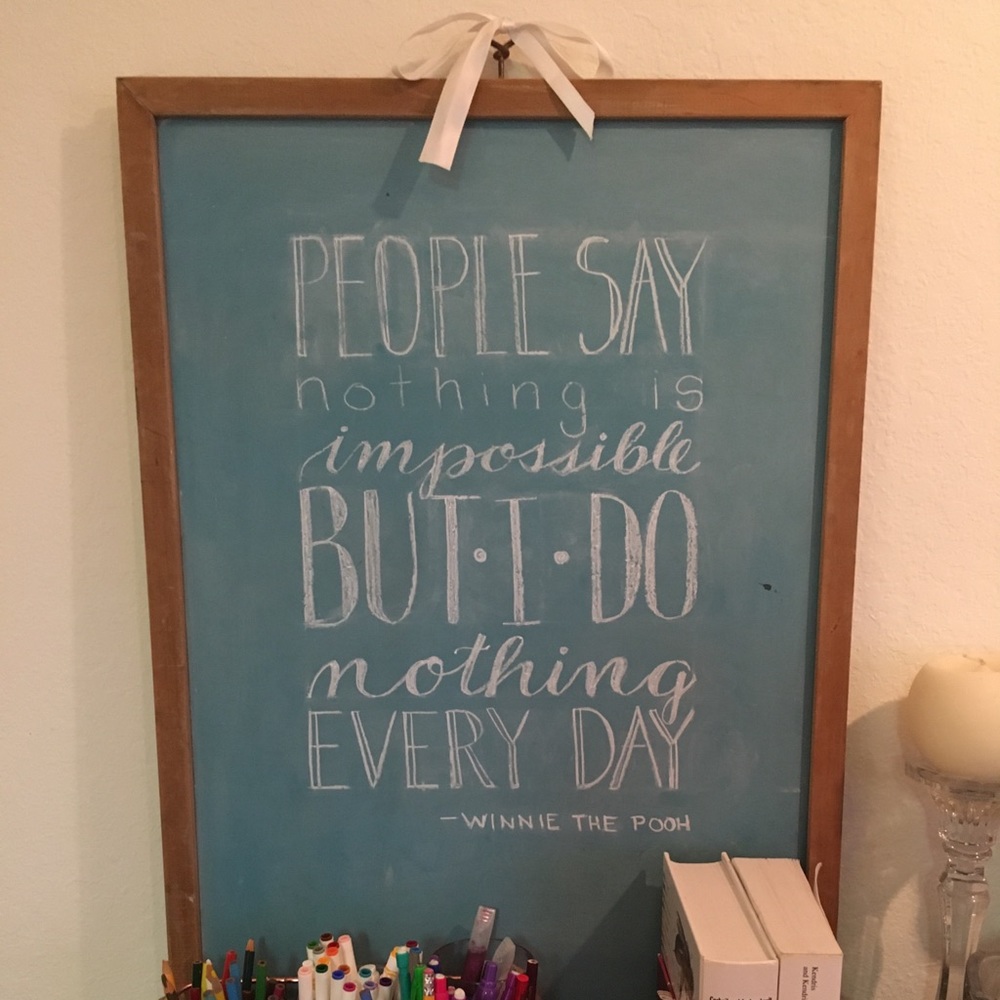 PEOPLE SAY
nothing is
impossible
BUT·I·DO
nothing
EVERY DAY
-WINNIE THE POOH
Kendris